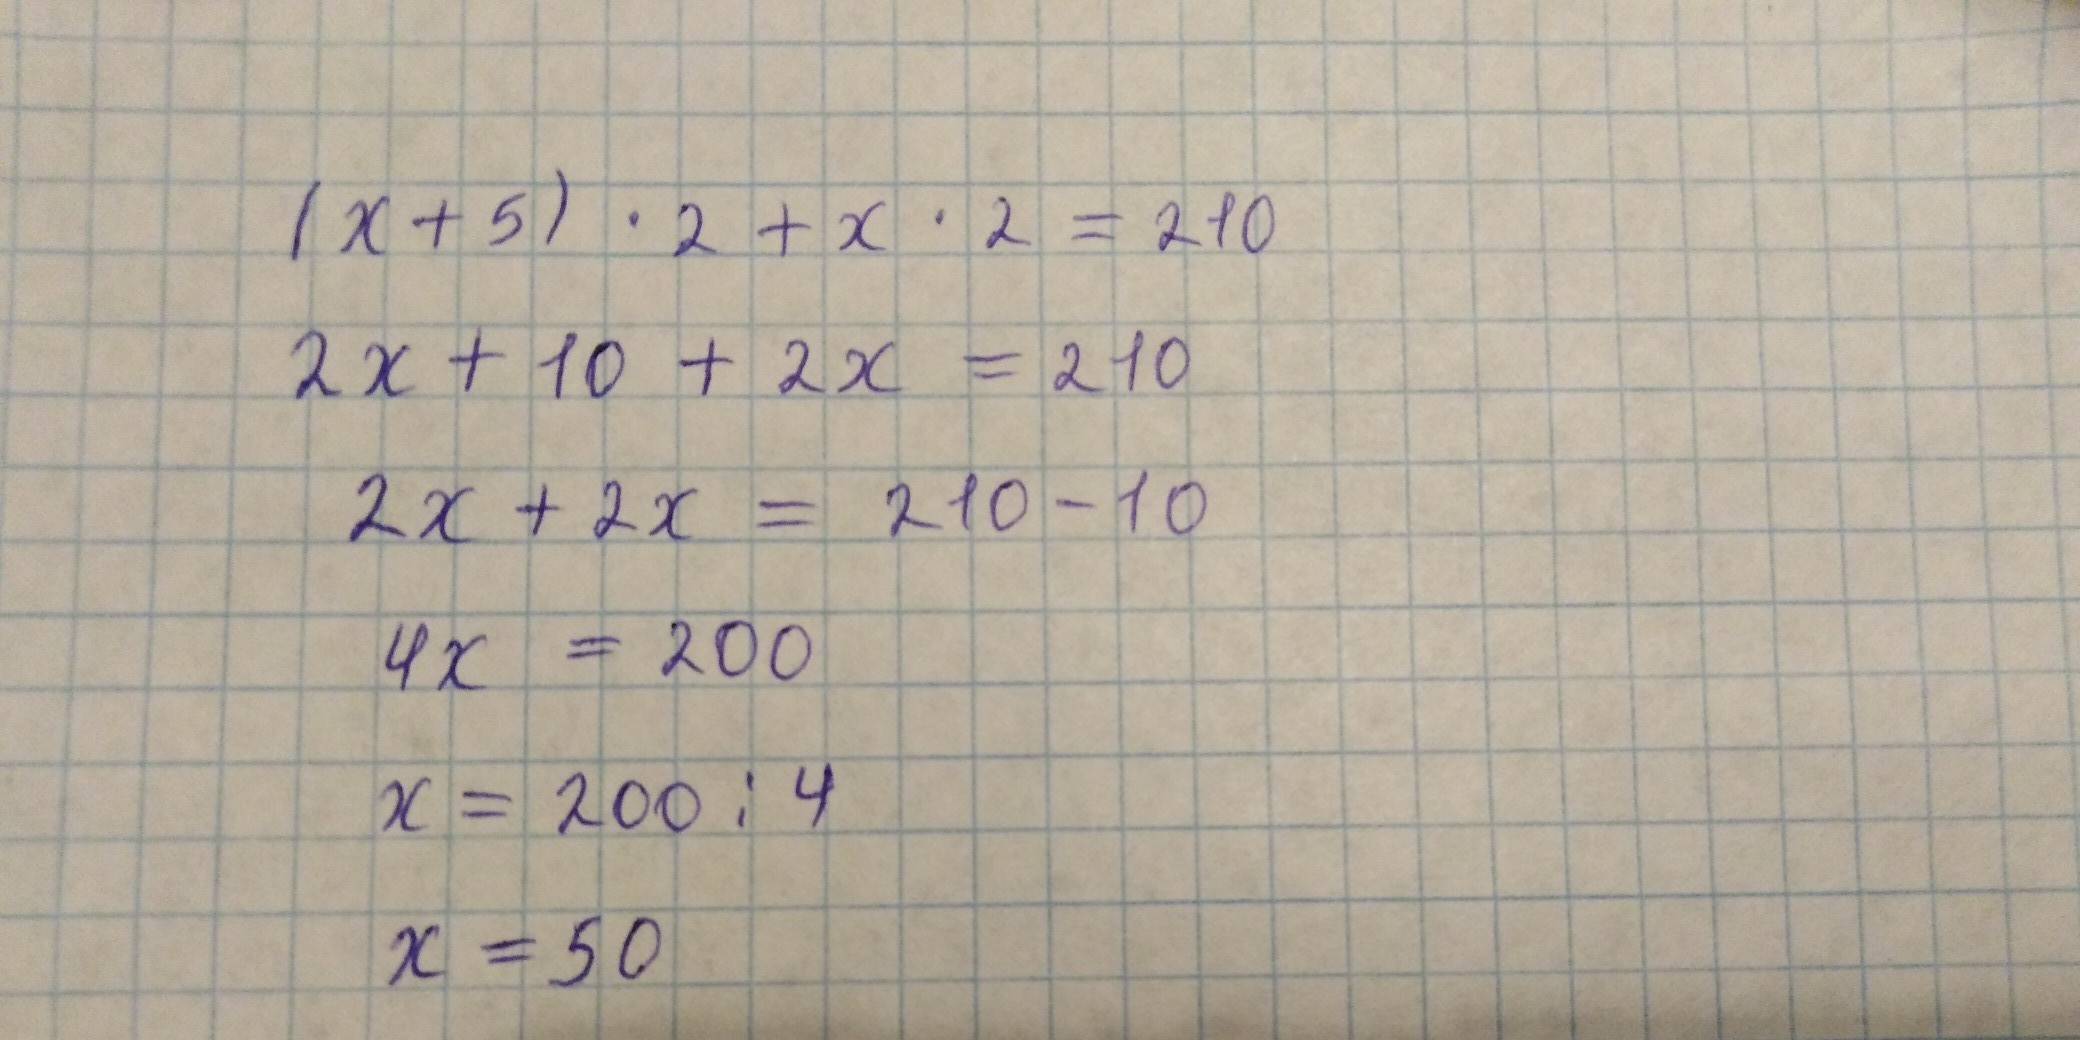 (x+5) · 2 + x · 2 = 210
2x + 10 + 2x = 210
2x + 2x = 210 - 10
4x = 200
x = 200 : 4
x = 50